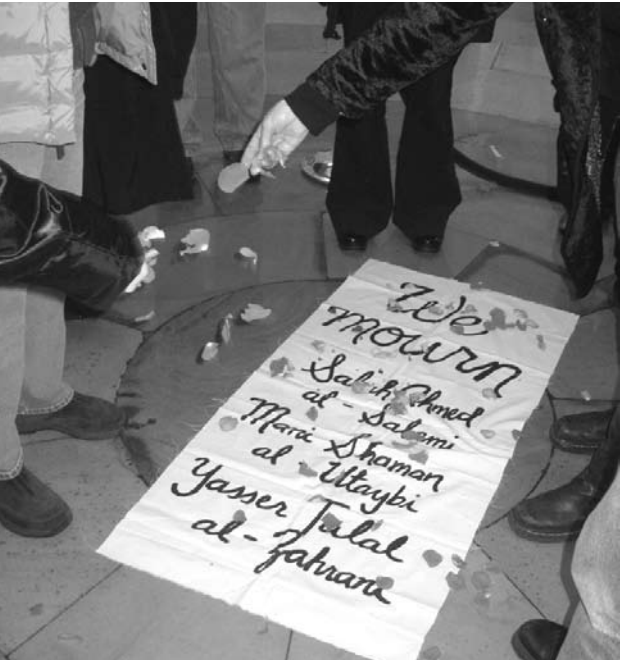 We
mourn
Salih Ahmed
al-Salami
Mani Shaman
al-Utaybi
Yasser Talal
al-Zahrani